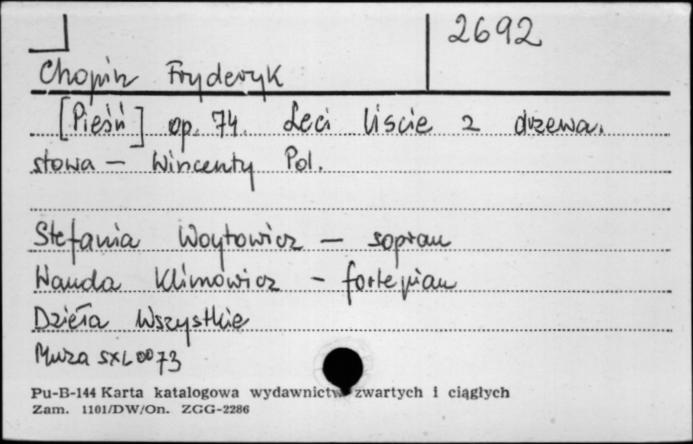 2692
Chopin Fryderyk
[Pieśń] op. 74. Leci liscie z drzewa.
słowa – Wincenty Pol.
Stefania Woytowicz – sopran
Wanda Klimowicz – fortepian
Dzieła Wszystkie
Muza SXL0073
Pu-B-144 Karta katalogowa wydawnictw zwartych i ciągłych
Zam. 1101/DW/On. ZGG-2286